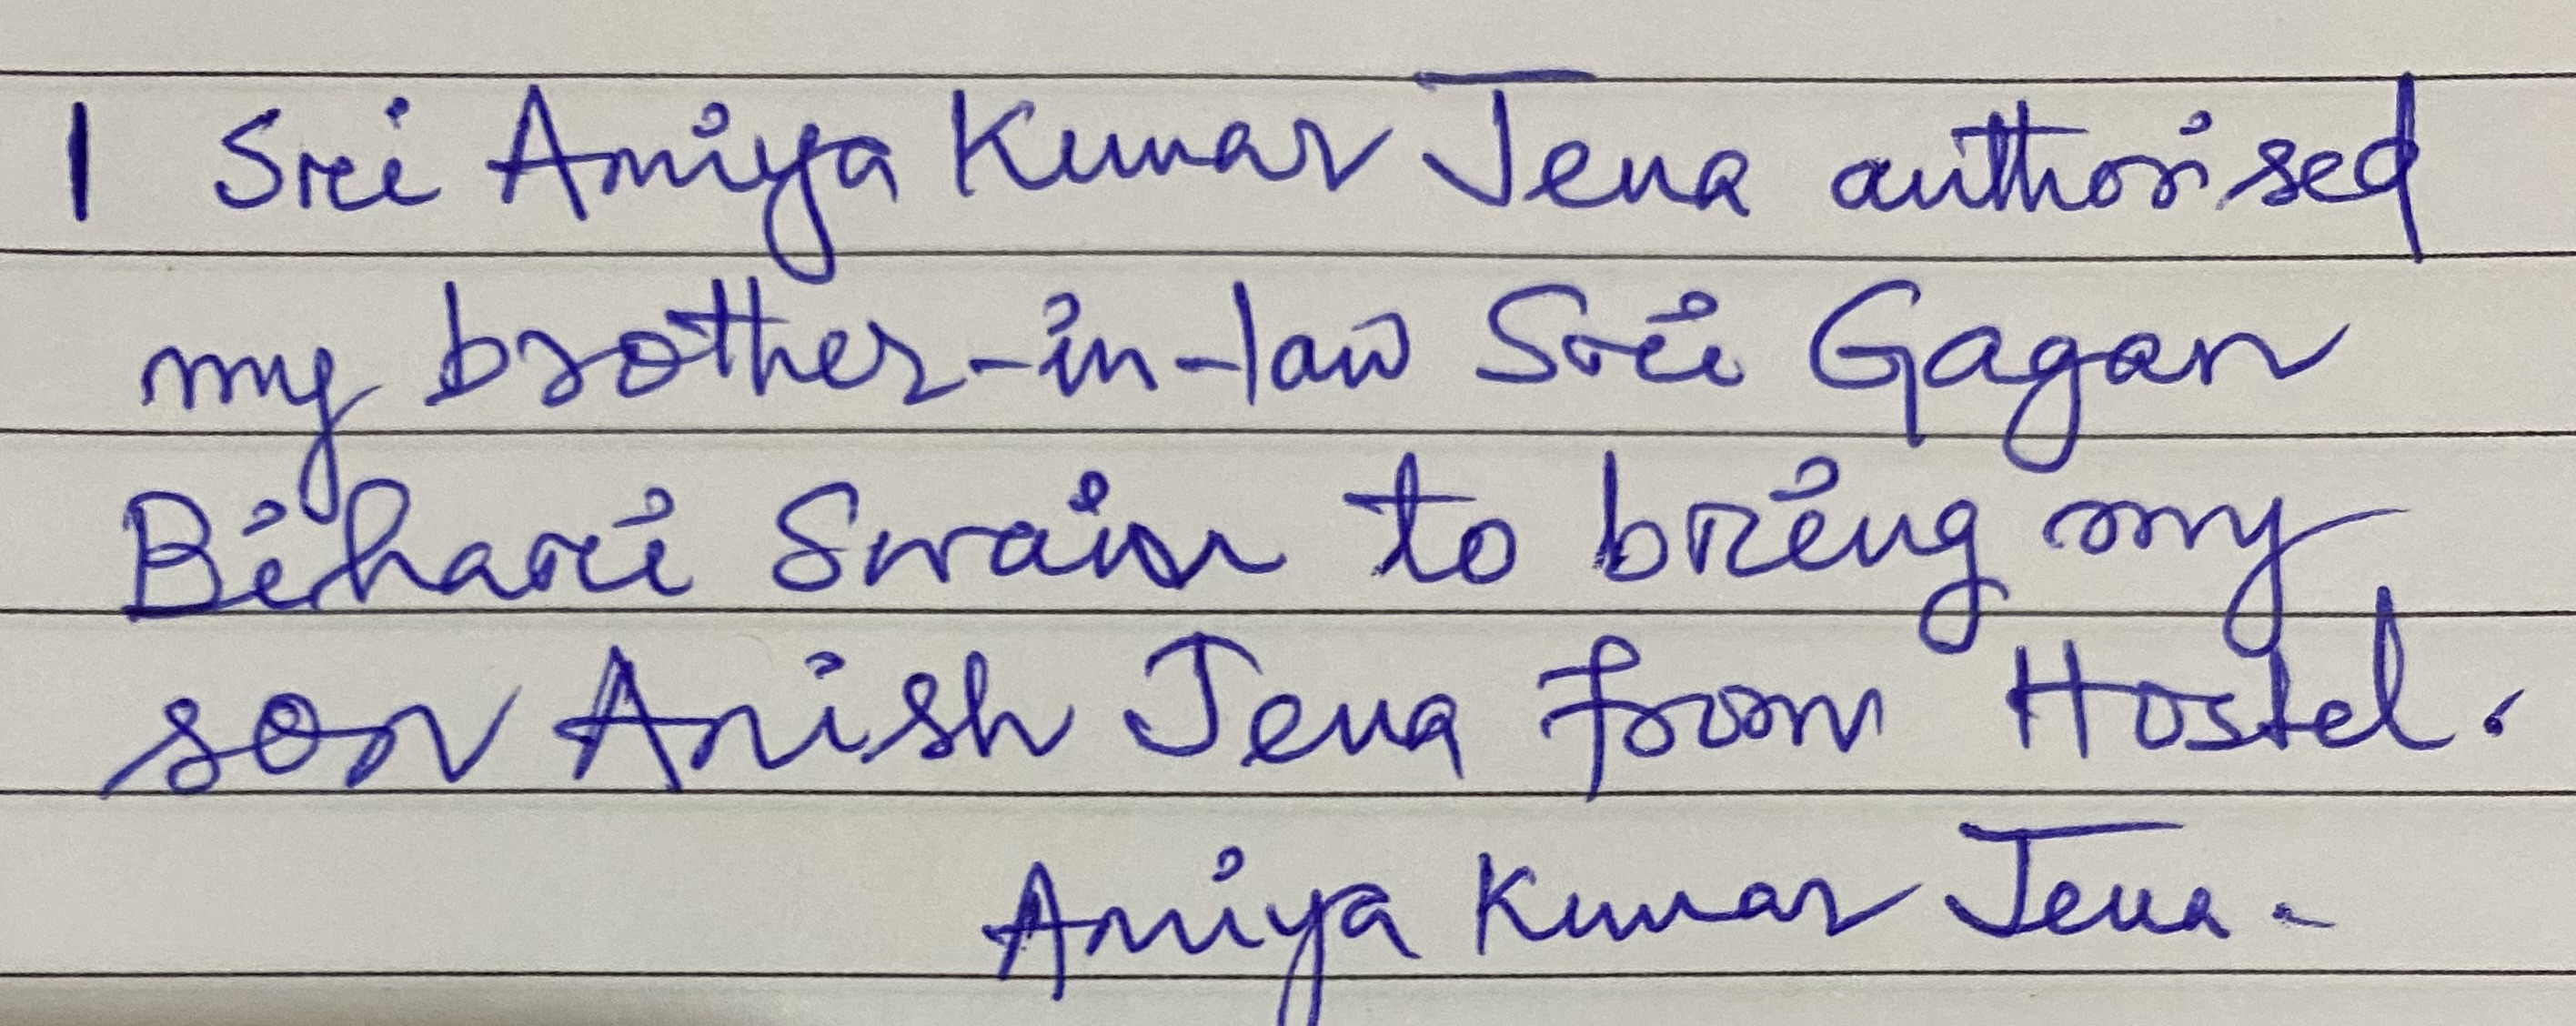 I Sri Amiya Kumar Jena authorised
my brother-in-law Sri Gagan
Bihari Swain to bring my
son Anish Jena from Hostel.
Amiya Kumar Jena.